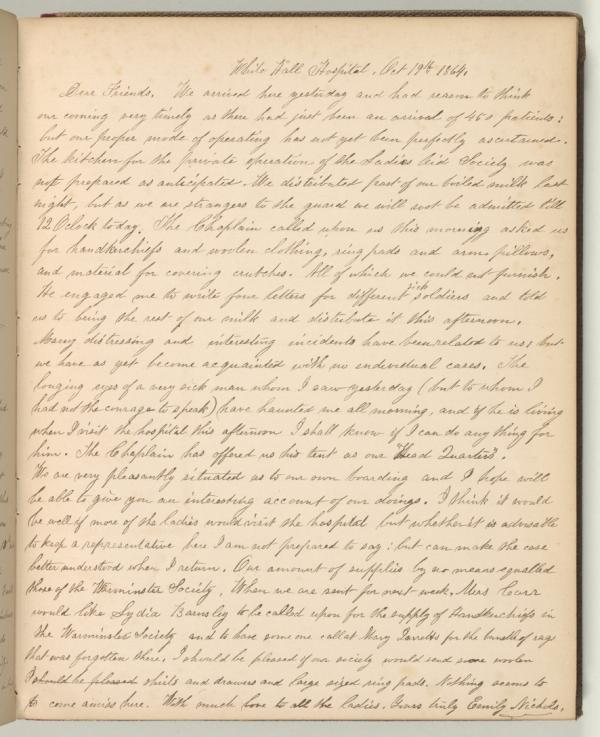 White Hall Hospital, Oct 19th 1864.
Dear Friends. We arrived here yesterday and had reason to think
our coming very timely as there had just been an arrival of 450 patients:
but our proper mode of operating has not yet been perfectly ascertained.
The kitchen for the private operation of the Ladies Aid Society was
not prepared as anticipated. We distributed part of our boiled milk last
night, but as we are strangers to the guard we will not be admitted till
12 O'clock today. The Chaplain called upon us this morning asked us
for handkerchiefs and woolen clothing, ring pads and arm pillows,
and material for covering crutches. All of which we could not furnish.
He engaged me to write four letters for different sick soldiers and told
us to bring the rest of our milk and distribute it this afternoon.
Many distressing and interesting incidents have been related to us: but
we have as yet become acquainted with no individual cases. The
longing eyes of a very sick man whom I saw yesterday (but to whom I
had not the courage to speak) have haunted me all morning, and if he is living
when I visit the hospital this afternoon I shall know if I can do any thing for
him. The Chaplain has offered us his tent as our "Head Quarters".
We are very pleasantly situated as to our own boarding and I hope will
be able to give you an interesting account of our doings. I think it would
be well if more of the ladies would visit the hospital but whether it is advisable
to keep a representative here I am not prepared to say: but can make the case
better understood when I return. Our amount of supplies by no means equalled
those of the Warminster Society. When we are sent for next week, Mrs Carr
would like Lydia Barnsley to be called upon for the supply of Handkerchiefs in
the Warminster Society and to have some one call at Mary for the bundle of rags
that was forgotten there. I should be pleased if our society would send some woolen
I should be pleased shirts and drawers and large sized ring pads. Nothing seems to
to come amiss here. With much love to all the ladies. Yours truly Emily Nichols.